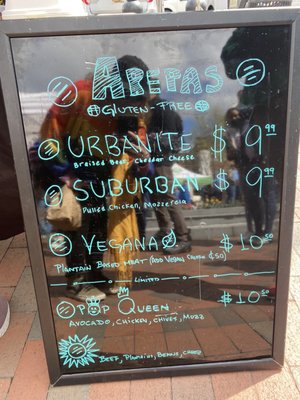 AREPAS
GLUTEN-FREE
URBANITE $9.99
Braised Beef, Cheddar Cheese
SUBURBAN $9.99
Pulled Chicken, Mozzerela
VEGANA $10.50
PLANTAIN BASED MEAT (ADD VEGAN CHEESE $.50)
LIMITED
POP QUEEN $10.50
AVOCADO, CHICKEN, CHIVES, MOZZ
BEEF, PLANTAINS, BEANS,